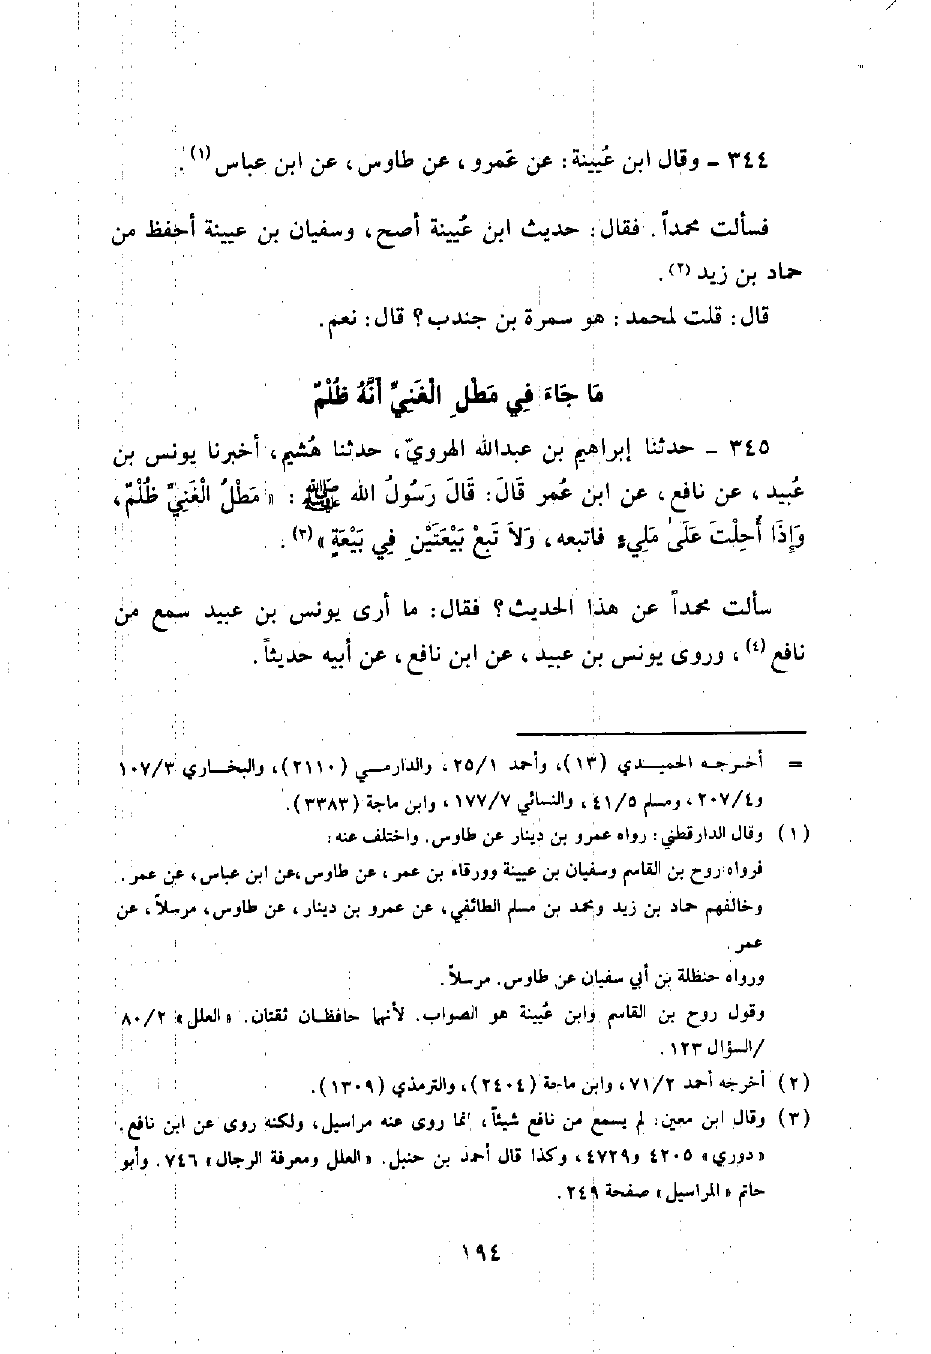 ٣٤٤ ـ وقال ابن عُيينة: عن عَمرو، عن طاوس، عن ابن عباس (١).
فسألت محمداً. فقال: حديث ابن عُيينة أصح، وسفيان بن عيينة أحفظ من
حماد بن زيد (٢).
قال: قلت لمحمد: هو سمرة بن جندب؟ قال: نعم.
مَا جَاءَ فِي مَطْلِ الْغَنِيِّ أَنَّهُ ظُلْمٌ
٣٤٥ ـ حدثنا إبراهيم بن عبدالله الهرويّ، حدثنا هُشيم، أخبرنا يونس بن
عُبيد، عن نافع، عن ابن عُمر قَالَ: قَالَ رَسُولُ الله ﷺ: «مَطْلُ الْغَنِيِّ ظُلْمٌ،
وَإِذَا أُحِلْتَ عَلَىٰ مَلِيءٍ فاتبعه، وَلاَ تَبِعْ بَيْعَتَيْنِ فِي بَيْعَةٍ» (٣).
سألت محمداً عن هذا الحديث؟ فقال: ما أرى يونس بن عبيد سمع من
نافع (٤)، وروى يونس بن عبيد، عن ابن نافع، عن أبيه حديثاً.
= أخرجه الحميدي (١٣)، وأحمد ٢٥/١، والدارمي (٢١١٠)، والبخاري ١٠٧/٣
و٢٠٧/٤، ومسلم ٤١/٥، والنسائي ١٧٧/٧، وابن ماجة (٣٣٨٣).
(١) وقال الدارقطني: رواه عمرو بن دينار عن طاوس. واختلف عنه:
فرواه روح بن القاسم وسفيان بن عيينة وورقاء بن عمر، عن طاوس، عن ابن عباس، عن عمر.
وخالفهم حماد بن زيد ومحمد بن مسلم الطائفي، عن عمرو بن دينار، عن طاوس، مرسلاً، عن
عمر.
ورواه حنظلة بن أبي سفيان عن طاوس. مرسلاً.
وقول روح بن القاسم وابن عُيينة هو الصواب. لأنهما حافظان ثقتان. «العلل» ٨٠/٢
/السؤال ١٢٣.
(٢) أخرجه أحمد ٧١/٢، وابن ماجة (٢٤٠٤)، والترمذي (١٣٠٩).
(٣) وقال ابن معين: لم يسمع من نافع شيئاً، إنما روى عنه مراسيل، ولكنه روى عن ابن نافع.
«دوري» ٤٢٠٥ و٤٧٢٩، وكذا قال أحمد بن حنبل. «العلل ومعرفة الرجال» ٧٤٦. وأبو
حاتم «المراسيل» صفحة ٢٤٩.
١٩٤